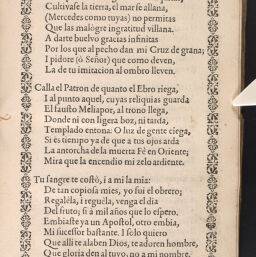 Cultivase la tierra, el mar se allana,
(Mercedes como tuyas) no permitas
Que las malògre ingratitud villana.
A darte buelvo gracias infinitas
Por los que al pecho dan mi Cruz de grana;
I pidote (ò Señor) que como deven,
La de tu imitacion al ombro lleven.
Calla el Patron de quanto el Ebro riega,
I al punto aquel, cuyas reliquias guarda
El fausto Meliapor, al tono llega,
Donde ni con ligera boz, ni tarda,
Templado entona: O luz de gente ciega,
Si es tiempo ya de que a tus ojos arda
La antorcha de la muerta Fè en Oriente;
Mira que la encendio mi zelo ardiente.
Tu sangre te costò, i a mi la mia:
De tan copiosa mies, yo fui el obrero;
Regaléla, i reguéla, venga el dia
Del fruto; si á mil años que lo espero.
Embiaste ya un Apostol, otro embia,
Mi sucessor bastante. I solo quiero
Que alli te alaben Dios, te adoren hombre,
Que gloria den al tuyo, no a mi nombre.